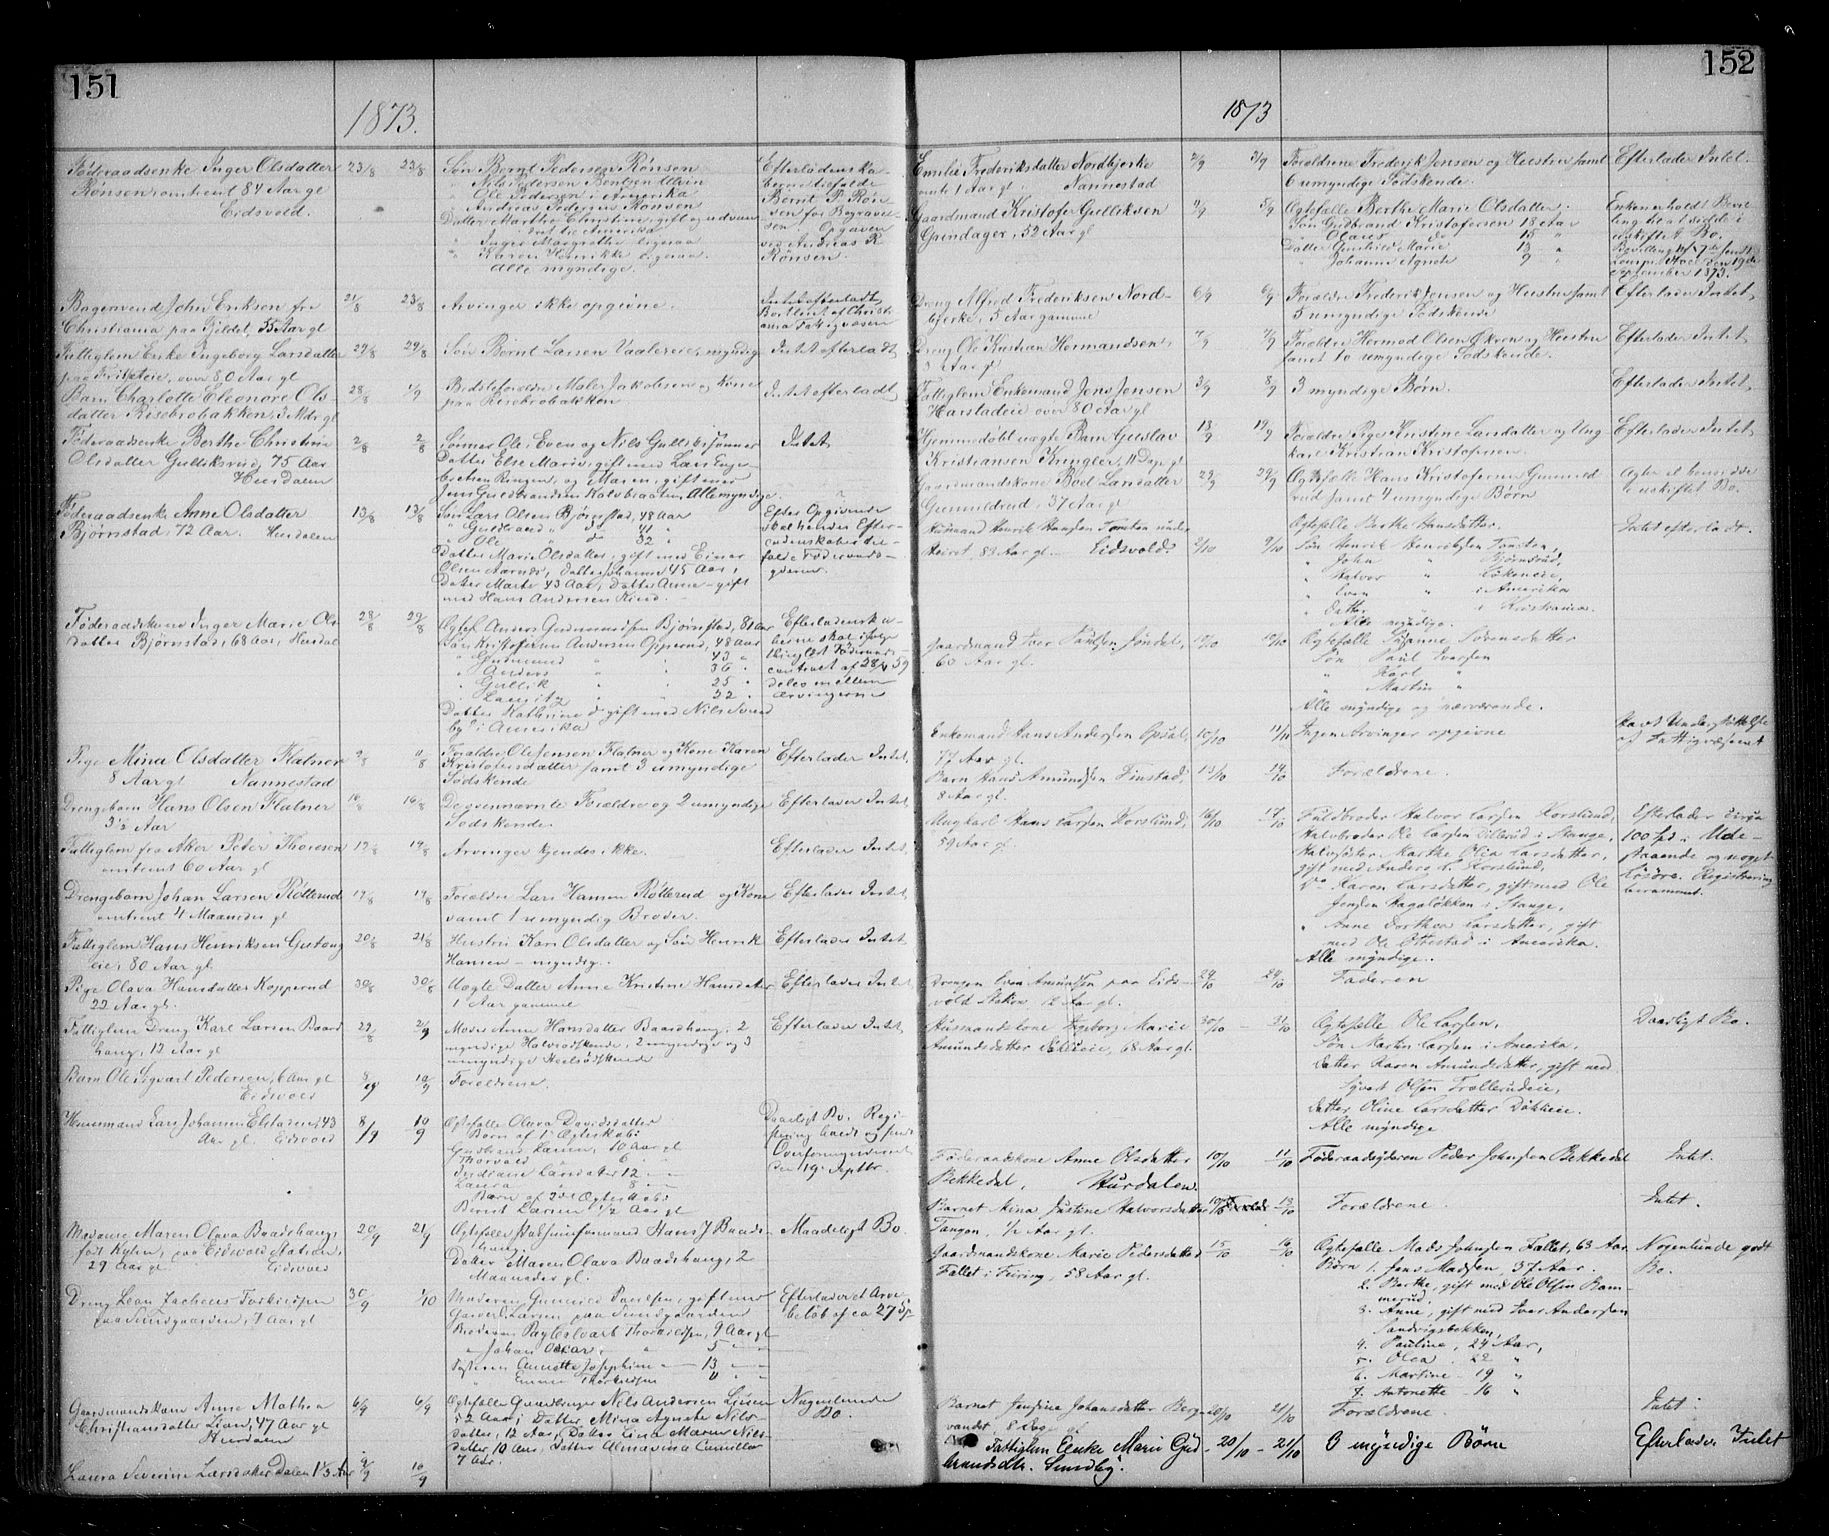 151
1873.
Føderaadsenke Inger Olsdatter
Rønsen omtrent 84 Aar gl
Eidsvold.
23/8 23/8
Søn Bernt Pedersen Rønsen
" Nils Pedersen
" Ole Pedersen i Amerika
" Andreas Pedersen Rønsen
Datter Marthe Christine, gift og udvan-
dret til Amerika
" Inger Margrethe ligesaa
" Karen Henrikke ligesaa
Alle myndige.
Efterladenska-
berne tilfaldt
Bernt P. Røn-
sen for Begravel-
sen. Opgaven
ved Andreas P.
Rønsen.
Bagersvend John Eriksen fra
Christiania paa Gjeldet, 55 Aar gl
21/8 23/8
Arvinger ikke opgivne.
Intet efterladt,
Bortleiet af Christi-
ania Fattigvæsen
Fattiglem Enke Ingeborg Larsdatter
over 80 Aar gl
29/8 29/8
Søn Bernt Larsen Vaalereie, myndig
Intet efterladt
Barn Charlotte Eleonore Ols-
datter Risebrobakken, 3 Mdr gl
28/8 1/9
Bedsteforældre Maler Jakobsen og Kone
paa Risebrobakken
Intet efterladt
Føderaadsenke Berthe Christine
Olsdatter Gulliksrud, 75 Aar
Hurdalen
2/8 2/8
Sønner Ole, Even og Nils Gulliksønner
Datter Else Marie, gift med Lars Enge-
bretsen Ringen, og Maren, gift med
Jens Guldbrandsen Kalvbraaten, Alle myndige.
Intet
Føderaadsenke Anne Olsdatter
Bjørnstad, 72 Aar. Hurdalen
13/8 13/8
Søn Lars Olsen Bjørnstad, 48 Aar
" Guldbrand " d° 41 "
" Ole " d° 32 "
Datter Marie Olsdatter, gift med Einar
Olsen Aarnæs, Datter Johanne 45 Aar,
Datter Marte 43 Aar, Datter Anne - gift
med Hans Andersen Rud.
Efter Opgivende
skal hendes Efter-
ladenskaber til-
falde Føderaads-
yderen.
Føderaadskone Inger Marie Ols-
datter Bjørnstad, 68 Aar, Hurdal
28/8 29/8
Ægtef. Anders Gudmundsen Bjørnstad, 81 Aar
Søn Kristoferen Andersen Opperud, 48 Aar
" Gudmund " 43 "
" Anders " 36 "
" Gullik " 25 "
" Lauritz " 22 "
Datter Kathrine d° gift med Nils
by i Amerika
Efterladenska-
berne skal ifølge
thinglæst Føderaads-
contract af 28/4 59
deles mellem
Arvingerne
Pige Mina Olsdatter Flatner
8 Aar gl Nannestad
9/8 11/8
Forældre Ole Jensen Flatner og Kone Karen
Kristofersdatter samt 3 umyndige
Sødskende
Efterlader Intet,
Drengebarn Hans Olsen Flatner
3½ Aar
16/8 16/8
De ovennævnte Forældre og 2 umyndige
Sødskende.
Efterlader Intet,
Fattiglem fra Aker Peter Thoresen
omtrent 60 Aar gl
17/8 19/8
Arvinger kjendes ikke.
Efterlader Intet,
Drengebarn Johan Larsen Røtterud
omtrent 4 Maaneder gl
17/8 19/8
Forældre Lars Hansen Røtterud og Kone
samt 1 umyndig Broder.
Efterlader Intet
Fattiglem Hans Henriksen
eie, 80 Aar gl.
20/8 21/8
Hustru Kari Olsdatter og Søn Henrik
Hansen - myndig.
Efterlader Intet
Pige Olava Hansdatter Kopperud
22 Aar gl.
30/8 30/8
Uægte Datter Anne Kristine Hansdatter
1 Aar gammel
Efterlader Intet
Fattiglem Dreng Karl Larsen Baards-
haug, 12 Aar gl
29/8 2/9
Moder Anne Hansdatter Baardshaug, 2
myndige Halvsødskende, 2 myndige og 3
umyndige Heelsødskende
Efterlader Intet
Barn Ole Sigvart Pedersen, 6 Aar gl
Eidsvold
8/9 10/9
Forældrene.
Huusmand Lars Johannesen Elstadeie, 43
Aar gl. Eidsvold
8/9 10/9
Ægtefælle Olava Davidsdatter
Børn af 1ste Ægteskab:
Gudbrand Larsen, 10 Aar gl
Thorvald " 6 "
Larsdatter 12 "
Laura " 8 "
Børn af 2det Ægteskab:
Bernt Larsen ½ Aar gl
Daarligt Bo. Regi-
strering holdt og sendt
Overformynderiet
den 19. Septbr.
Madame Maren Olava Baardshaug,
født paa Eidsvold Station,
29 Aar gl Eidsvold
20/9 21/9
Ægtefælle Hans J Baards-
haug.
Datter Maren Olava Baardshaug, 2
Maaneder gl.
Maadeligt Bo.
Dreng Leon Zacheus Torkildsen
paa Sundgaarden, 7 Aar gl
30/9 1/10
Moderen Gunhild Paulsen, gift med
Gaardb. Larsen paa Sundgaarden
Broderen Thorkildsen, 9 Aar gl
" Johan Oskar, " 5 "
Søsteren Annette Josephine " 13 "
" Emma Thorkildsen " 11 "
Efterlader et Arve-
beløb af ca 27 Sp.
Gaardmandskone Anne Mathea
Christiansdatter Lian, 47 Aar gl
Hurdalen
6/9 6/9
Ægtefælle Gaardbruger Nils Andersen Lian
52 Aar, Datter Mina Agnete Nils-
datter, 12 Aar, Datter Lina Maren Nils-
datter, 10 Aar, Datter Camilla
7 Aar.
Nogenlunde
Bo.
Laura Severine Larsdatter Dalen 1½ Aar
9/9 10/9
152
1873
Emilie Frederiksdatter Nordbjerke
omtr. 1 Aar gl. Nannestad
2/9 3/9
Forældrene Frederik Jensen og Hustru samt
6 umyndige Sødskende.
Efterlader Intet.
Gaardmand Kristofer Gulliksen
Grindager, 52 Aar gl
4/9 5/9
Ægtefælle Berthe Marie Olsdatter.
Søn Gudbrand Kristofersen 18 Aar
" Olaus do 15 "
Datter Gunhild Marie 13 "
" Johanne Agnete 9 "
Enken erholdt Bevil-
ling til at sidde i
uskiftet Bo.
19de
September 1873.
Dreng Alfred Frederiksen Nord-
bjerke, 5 Aar gammel
6/9 6/9
Forældre Frederik Jensen og Hustru samt
5 umyndige Sødskende
Efterlader Intet,
Dreng Ole Kristian Hermandsen,
3 Aar gl
7/9 7/9
Forældre Hermod Olsen og Hustru
samt 10 umyndige Sødskende.
Efterlader Intet
Fattiglem Enkemand Jens Jensen
Harstadeie over 80 Aar gl
3/9 8/9
3 myndige Børn.
Efterlader Intet,
Hjemmedøbt uægte Barn Gustav
Kristiansen Kringler, 11 Dage gl
18/9 19/9
Forældre Pige Kristine Larsdatter og Ung-
karl Kristian Kristofersen.
Efterlader Intet,
Gaardmandskone Boel Larsdatter
Gummelrud, 37 Aar gl
29/9 29/9
Ægtefælle Hans Kristofersen Gummel-
rud samt 4 umyndige Børn
Agter at hensidde
i uskiftet Bo.
Husmand Henrik Hansen Tomten under
Heiret 89 Aar gl. Eidsvold
2/10 9/10
Ægtefælle Berthe Hansdatter.
Søn Henrik Henriksen Tomten,
" John " Bjørnsrud,
" Halvor " Løkeneie,
" Even " i Amerika
" Datter " i Kristiania.
Alle myndige.
Intet efterladt.
Gaardmand Iver Paulsen Jøndal,
60 Aar gl.
10/10 10/10
Ægtefælle Susanne Sørensdatter
Søn Paul Iversen
" Karl "
" Martin "
Alle myndige og nærværende.
Enkemand Hans Andersen Opsal,
77 Aar gl.
10/10 11/10
Ingen Arvinger opgivne
Havt Understøttelse
af Fattigvæsenet
Barn Hans Amundsen Finstad,
8 Aar gl.
13/10 14/10
Forældrene.
Ungkarl Hans Larsen Korslund,
59 Aar gl.
16/10 17/10
Fuldbroder Halvor Larsen Korslund,
Halvbroder Ole Larsen Dillerud i Stange,
Halvsøster Marthe Olia Larsdatter,
gift med Anders L. Korslund,
do Karen Larsdatter, gift med Ole
Jensen Hagaløkken i Stange,
" Anne Dorthea Larsdatter, gift
med Ole Ottestad i Amerika.
Alle myndige.
Efterlader circa
100 Spd. i Ude-
staaende og noget
Løsøre. Registrering
berammet.
Drengen Even Amundsen paa Eids-
vold Station 12 Aar gl.
24/10 24/10
Faderen
Husmandskone Ingeborg Marie
Amundsdatter Døkkeeie, 68 Aar gl.
30/10 - 31/10
Ægtefælle Ole Larsen,
Søn Martin Larsen i Amerika,
Datter Karen Amundsdatter, gift med
Sigvart Olsen Trøllerudeie,
datter Oline Larsdatter Døkkeie.
Alle myndige
Daarligt Bo.
Føderaadskone Anne Olsdatter
Bekkedal, Hurdalen.
10/10 - 11/10
Føderaadsyderen Peder Johnsen Bekkedal
Intet.
Barnet Mina Justine Halvorsdatter
Tangen, ½ Aar gl.
10/10 - 13/10
Forældrene.
Intet.
Gaardmandskone Marie Pedersdatter
Fallet i Feiring, 58 Aar gl.
15/10 16/10
Ægtefælle Mads Johnsen Fallet, 63 Aar.
Børn 1. Jens Madsen, 37 Aar.
2. Berthe, gift med Ole Olsen Ram-
merud,
3. Anne, gift med Iver Andersen
Sandvigsbekken,
4. Pauline, 24 Aar,
5. Olea, 22 "
6. Martine - 19 "
7. Antonette - 16 "
Nogenlunde godt
Bo.
Barnet Jensine Johansdatter Berg-
vandet, 8 Dag gl
20/10 - 21/10
Forældrene.
Intet.
Fattiglem Enke Marie Gud-
brandsdtr. Sundby.
20/10 - 21/10
0 myndige Børn
Efterlader Intet